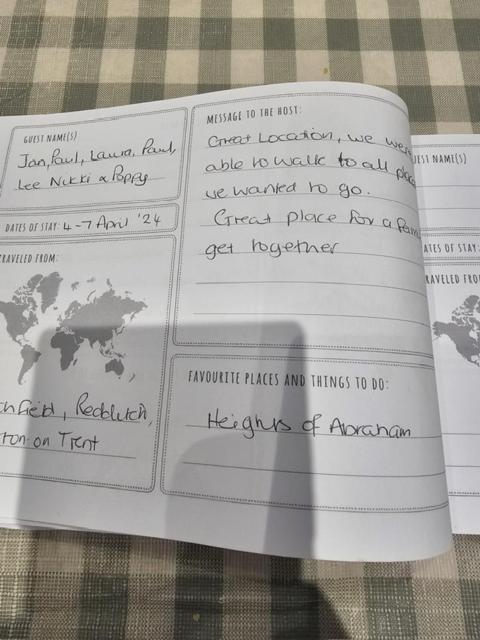 GUEST NAME(S)
Jan, Paul, Laura, Paul,
Lee Nikki & Poppy
DATES OF STAY: 4-7 April '24
TRAVELED FROM:
Redditch,
on Trent
MESSAGE TO THE HOST:
Great Location, we were
able to walk to all
we wanted to go.
Great place for a
get together
FAVOURITE PLACES AND THINGS TO DO:
Heights of Abraham
GUEST NAME(S)
DATES OF STAY:
TRAVELED FROM: